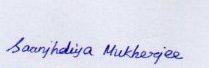 Saanjhdiya Mukherjee